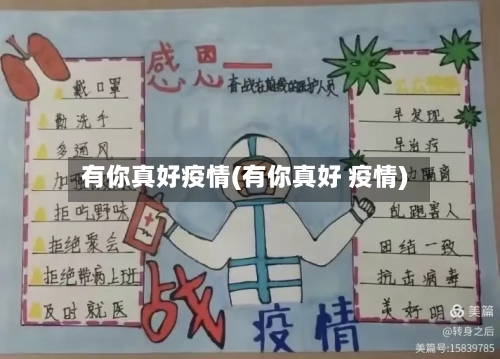 感恩——
奋战在前线的医护人员
戴口罩
勤洗手
多通风
拒吃野味
拒绝聚会
拒绝带病上班
及时就医
早发现
早治疗
隔离
乱跑害人
团结一致
抗击病毒
美好明
有你真好疫情(有你真好 疫情)
战疫情
美篇
@转身之后
美篇号:15839785